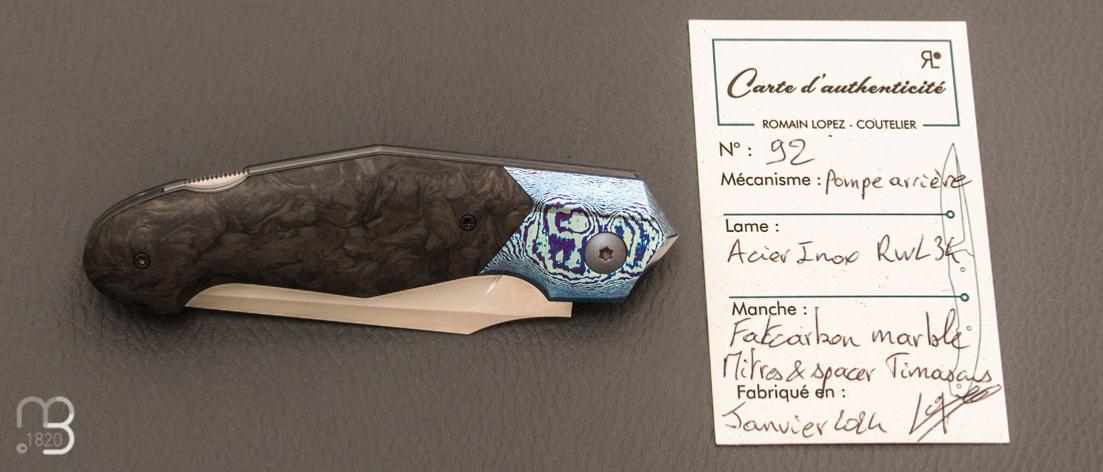 RL
Carte d'authenticité
ROMAIN LOPEZ - COUTELIER
N° : 92
Mécanisme : Pompe arrière
Lame :
Acier Inox RWL 34
Manche :
Fatcarbon marble
Mitres & spacer Timascus
Fabriqué en :
Janvier 2024
MB
©1820